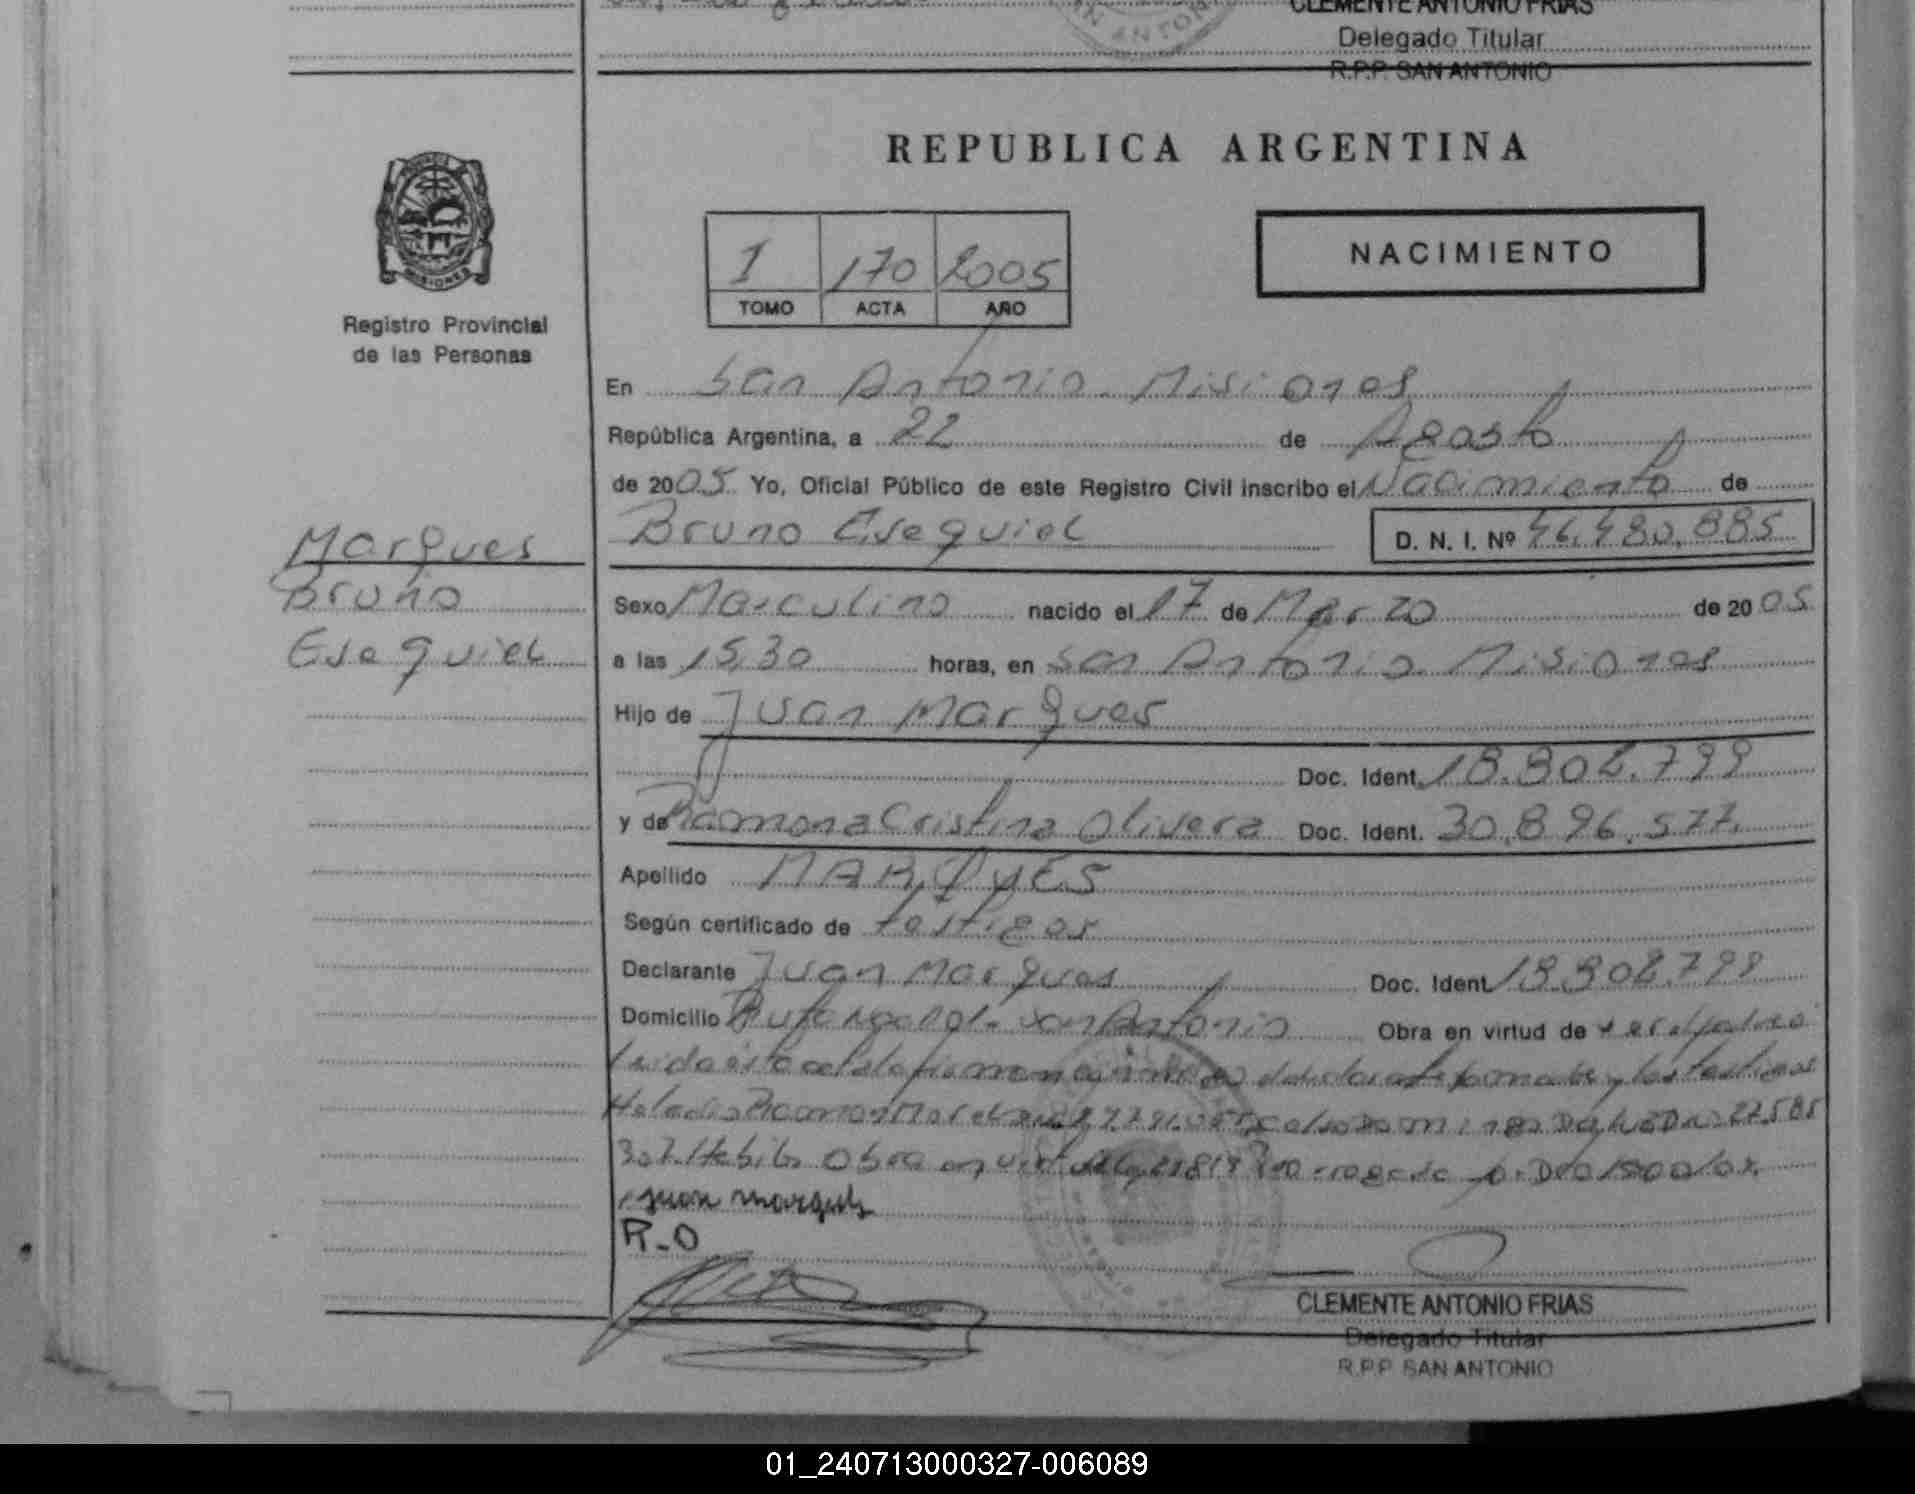 CLEMENTE ANTONIO FRIAS
Delegado Titular
R.P.P. SAN ANTONIO
REPUBLICA ARGENTINA
PROVINCIA
MISIONES
1 170 2005
TOMO ACTA AÑO
NACIMIENTO
Registro Provincial
de las Personas
En San Antonio. Misiones
República Argentina, a 22 de Agosto
de 2005 Yo, Oficial Público de este Registro Civil inscribo el Nacimiento de
Bruno Esequiel D. N. I. Nº 46.480.885
Marques
Bruno
Esequiel
Sexo Masculino nacido el 17 de Marzo de 2005
a las 15,30 horas, en San Antonio. Misiones
Hijo de Juan Marques
Doc. Ident. 18.802.799
y de Ramona Cristina Olivera Doc. Ident. 30.896.577.
Apellido MARQUES
Según certificado de testigos
Declarante Juan Marques Doc. Ident. 18.802.799
Domicilio San Antonio Obra en virtud de
Leida el acta la firman declarante y los testigos
Ramon 27.585
307 Habil. Obra en
juan marques
R.O
CLEMENTE ANTONIO FRIAS
Delegado Titular
R.P.P. SAN ANTONIO
01_240713000327-006089